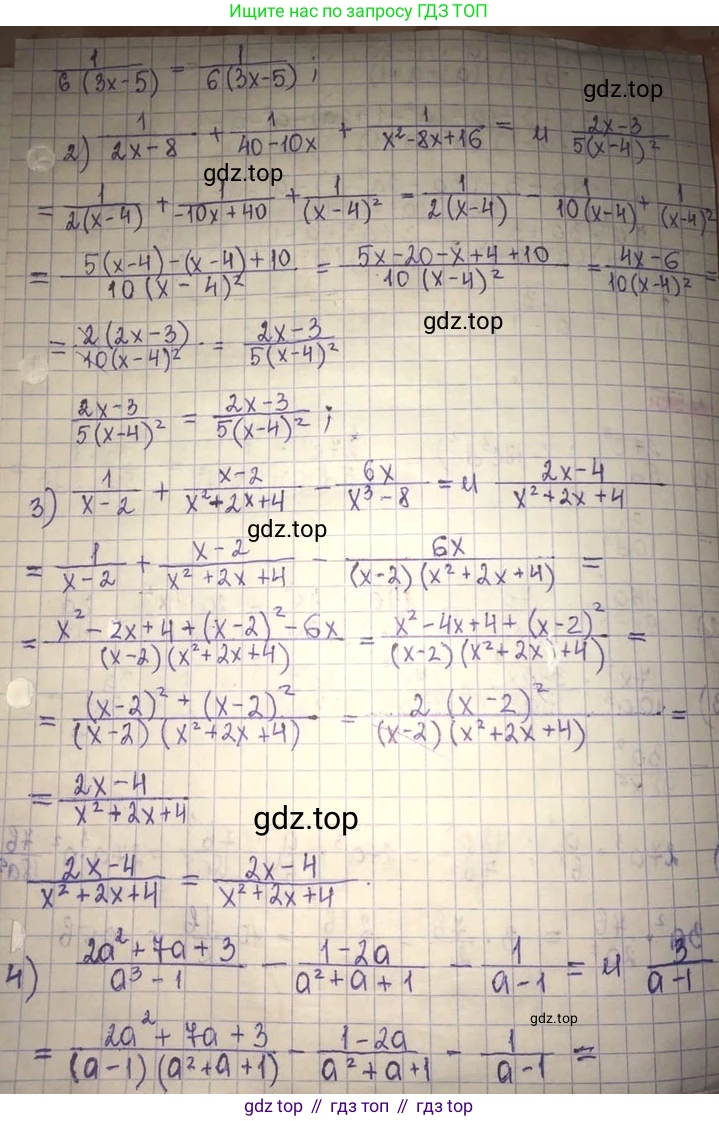 Ищите нас по запросу ГДЗ ТОП
1/(6(3x-5)) = 1/(6(3x-5));
gdz.top
2) 1/(2x-8) + 1/(40-10x) + 1/(x²-8x+16) = и (2x-3)/(5(x-4)²)
gdz.top
= 1/(2(x-4)) + 1/(-10x+40) + 1/(x-4)² = 1/(2(x-4)) - 1/(10(x-4)) + 1/(x-4)²
= (5(x-4)-(x-4)+10)/(10(x-4)²) = (5x-20-x+4+10)/(10(x-4)²) = (4x-6)/(10(x-4)²) =
gdz.top
= (2(2x-3))/(10(x-4)²) = (2x-3)/(5(x-4)²)
(2x-3)/(5(x-4)²) = (2x-3)/(5(x-4)²);
3) 1/(x-2) + (x-2)/(x²+2x+4) - 6x/(x³-8) = и (2x-4)/(x²+2x+4)
gdz.top
= 1/(x-2) + (x-2)/(x²+2x+4) - 6x/((x-2)(x²+2x+4)) =
= (x²-2x+4+(x-2)²-6x)/((x-2)(x²+2x+4)) = (x²-4x+4+(x-2)²)/((x-2)(x²+2x+4)) =
= ((x-2)²+(x-2)²)/((x-2)(x²+2x+4)) = (2(x-2)²)/((x-2)(x²+2x+4)) =
= (2x-4)/(x²+2x+4)
gdz.top
(2x-4)/(x²+2x+4) = (2x-4)/(x²+2x+4).
4) (2a²+7a+3)/(a³-1) - (1-2a)/(a²+a+1) - 1/(a-1) = и 3/(a-1)
gdz.top
= (2a²+7a+3)/((a-1)(a²+a+1)) - (1-2a)/(a²+a+1) - 1/(a-1) =
gdz top // гдз топ // gdz top